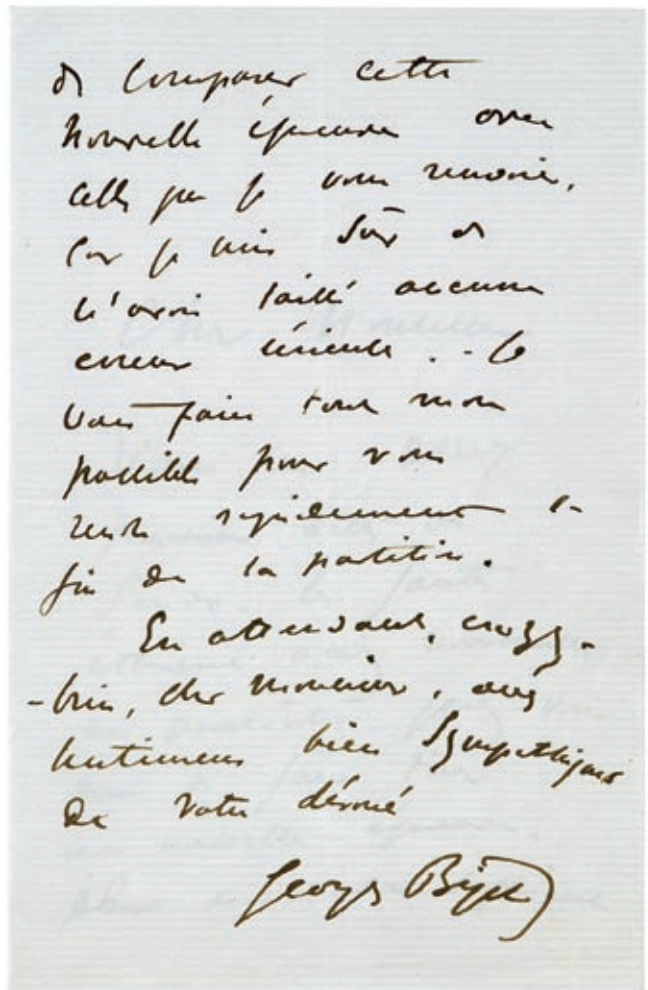 de comparer cette
nouvelle épreuve avec
celle que je vous renvoie,
car je suis sûr de
n'avoir laissé aucune
erreur sérieuse... Je
vais faire tout mon
possible pour vous
rendre rapidement la
fin de la partition.
En attendant, croyez-
-bien, cher Monsieur, aux
sentiments bien sympathiques
de votre dévoué
Georges Bizet